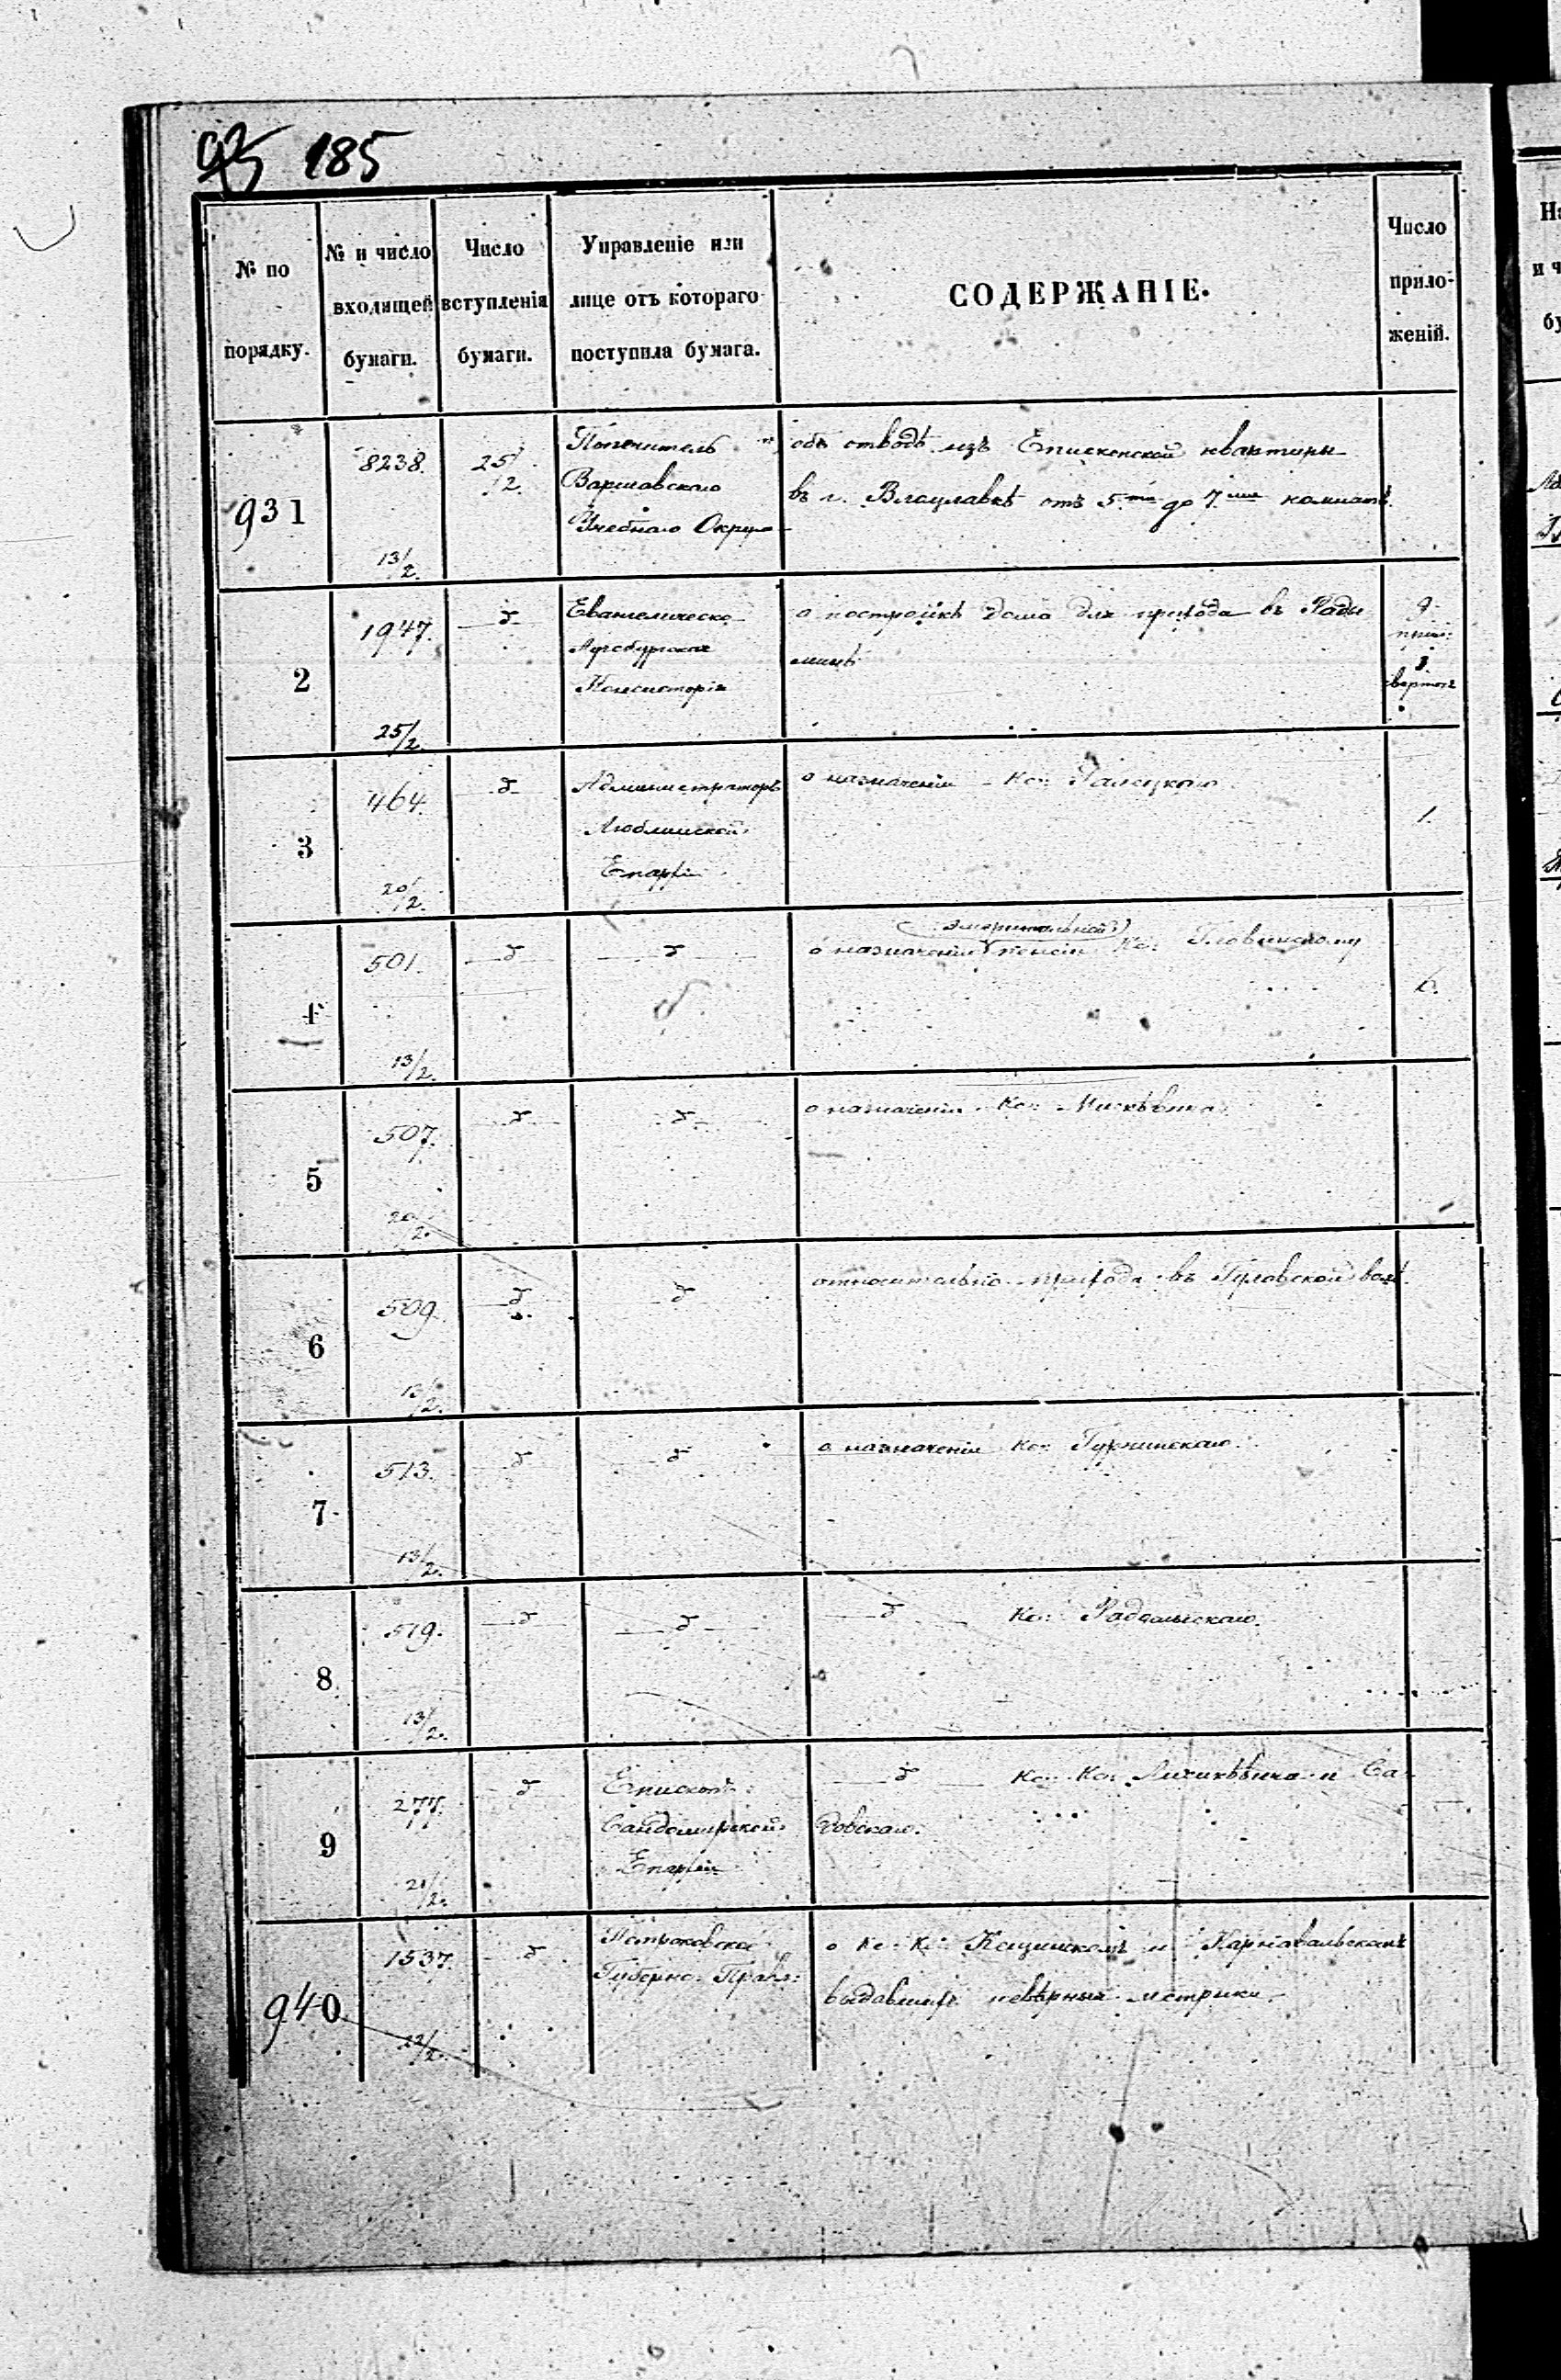 185
№ по порядку.
№ и число входящей бумаги.
Число вступленія бумаги.
Управленіе или лице отъ котораго поступила бумага.
СОДЕРЖАНІЕ.
Число приложеній.
931
8238.
13/2.
25/12.
Попечитель
Варшавскаго
Учебнаго Округа
объ отводѣ изъ Епископской квартиры
въ г. Влоцлавкѣ отъ 5.ти до 7.ми комнатъ.
2
1947.
25/2.
Евангелическо
Аугсбургская
Консисторія
о постройкѣ дома для прихода въ Ради
минѣ
3
464.
20/2.
Администраторъ
Люблинской
Епархіи
о назначеніи Кс:
1.
4
501.
13/2.
эмеритальной
о назначеніи пенсіи Кс: Гловинскому
5
507.
20/2.
о назначеніи Кс:
6
509.
относительно прихода въ Гуловской
7
513.
13/2.
о назначеніи Кс:
8
519.
13/2.
Кс:
9
277.
21/2.
Епископъ
Сандомирской
Епархіи
Кс: Кс: и Са
довскаго.
940
1537.
12/2.
Петроковское
Губерн: Правл:
о Кс: Кс: и
выдавшихъ невѣрныя метрики.